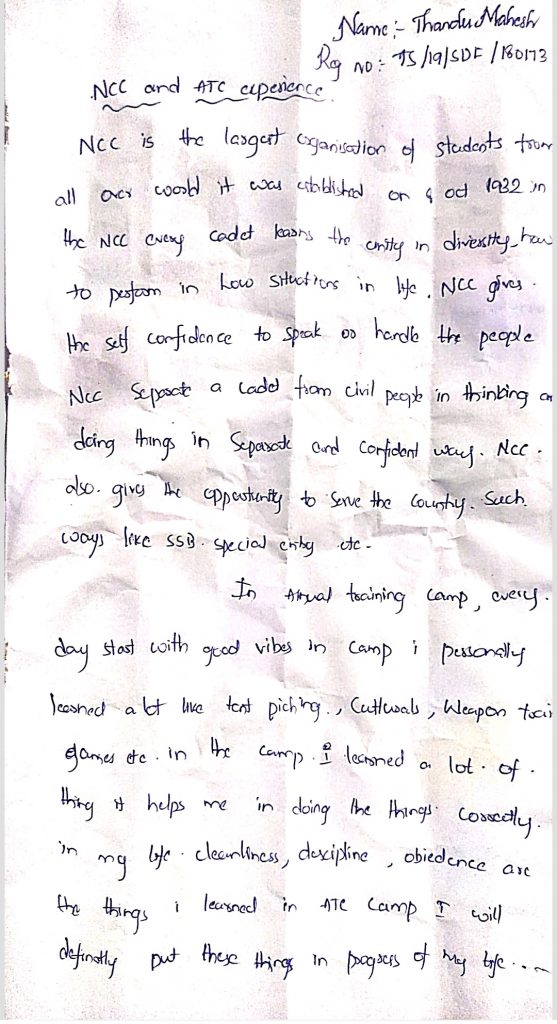 Name :- Thandu Mahesh
Reg no :- TS/19/SDF/180173
NCC and ATC experience
NCC is the largest organisation of students from
all over world it was established on 8 oct 1932 in
the NCC every cadet learns the unity in diversity, how
to perform in how situctions in life. NCC gives.
the self confidence to speak or handle the people
Ncc Separate a cadet from civil people in thinking
doing things in Separate and confident ways. NCC.
also. gives the oppourtunity to Serve the Country. Such
ways like SSB. special entry etc-
In Annual training camp, every.
day start with good vibes in camp i personally
learned a lot like tent piching., Cutluruals, Weapon
games etc. in the camp. I learned a lot. of.
thing it helps me in doing the things correctly.
in my life. cleanliness, descipline, obiedence are
the things i learned in ATC Camp I will
definatly put these things in progress of My life....